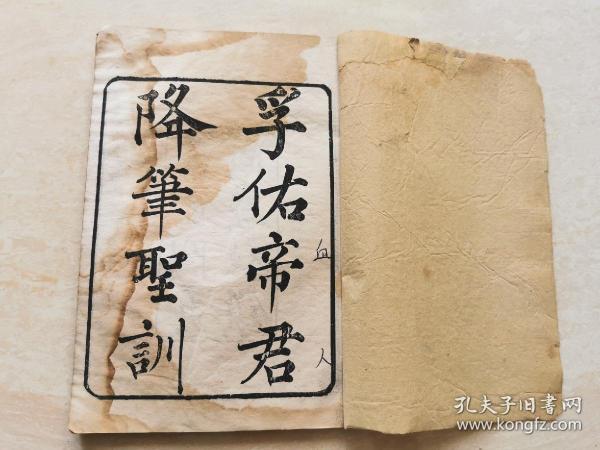 孚佑帝君
降筆聖訓
血
人
孔夫子旧书网
www.kongfz.com